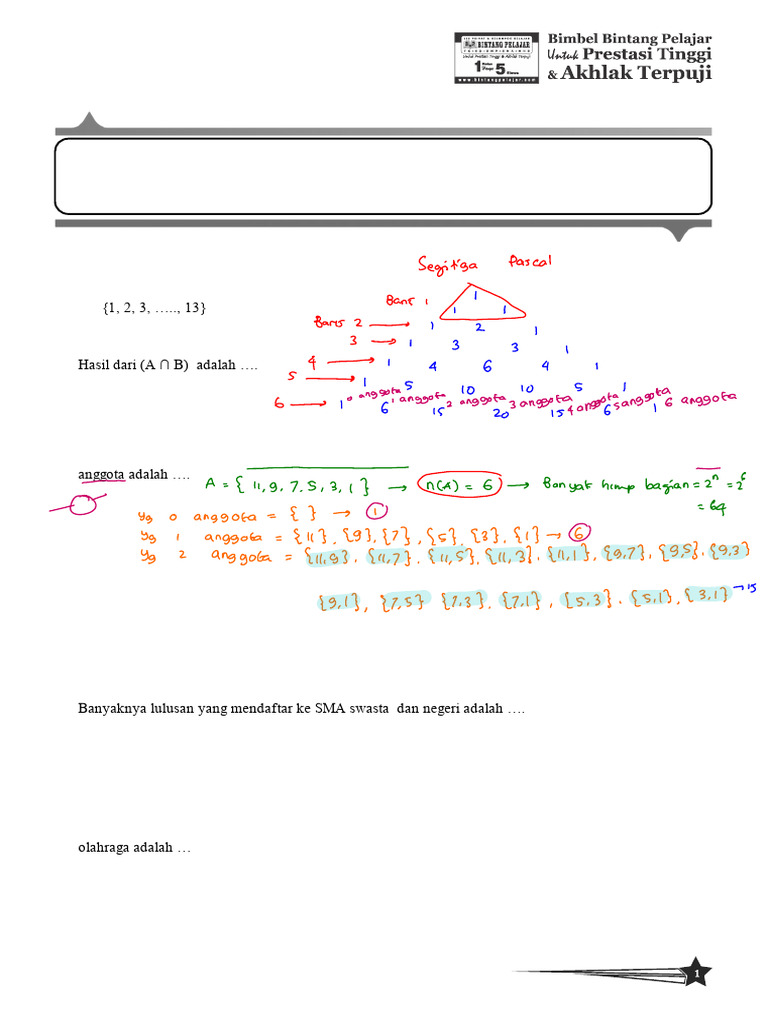 LES PRIVAT & KELOMPOK BELAJAR
BINTANG PELAJAR
Untuk Prestasi Tinggi & Akhlak Terpuji
1 5
www.bintangpelajar.com
Bimbel Bintang Pelajar
Untuk Prestasi Tinggi
& Akhlak Terpuji
Segitiga Pascal
{1, 2, 3, ….., 13}
Baris 1 1
1 1
Baris 2 1 2 1
3 1 3 3 1
Hasil dari (A ∩ B) adalah ….
4 1 4 6 4 1
5 1 5 10 10 5 1
0 anggota 1 anggota 2 anggota 3 anggota 4 anggota 5 anggota 6 anggota
6 1 6 15 20 15 6 1
anggota adalah ….
A = { 11, 9, 7, 5, 3, 1 } → n(A) = 6 → Banyak himp bagian = 2ⁿ = 2⁶
= 64
yg 0 anggota = { } → 1
yg 1 anggota = {11}, {9}, {7}, {5}, {3}, {1} → 6
yg 2 anggota = {11,9}, {11,7}, {11,5}, {11,3}, {11,1}, {9,7}, {9,5}, {9,3}
{9,1}, {7,5} {7,3}, {7,1}, {5,3}, {5,1}, {3,1} → 15
Banyaknya lulusan yang mendaftar ke SMA swasta dan negeri adalah ….
olahraga adalah …
1